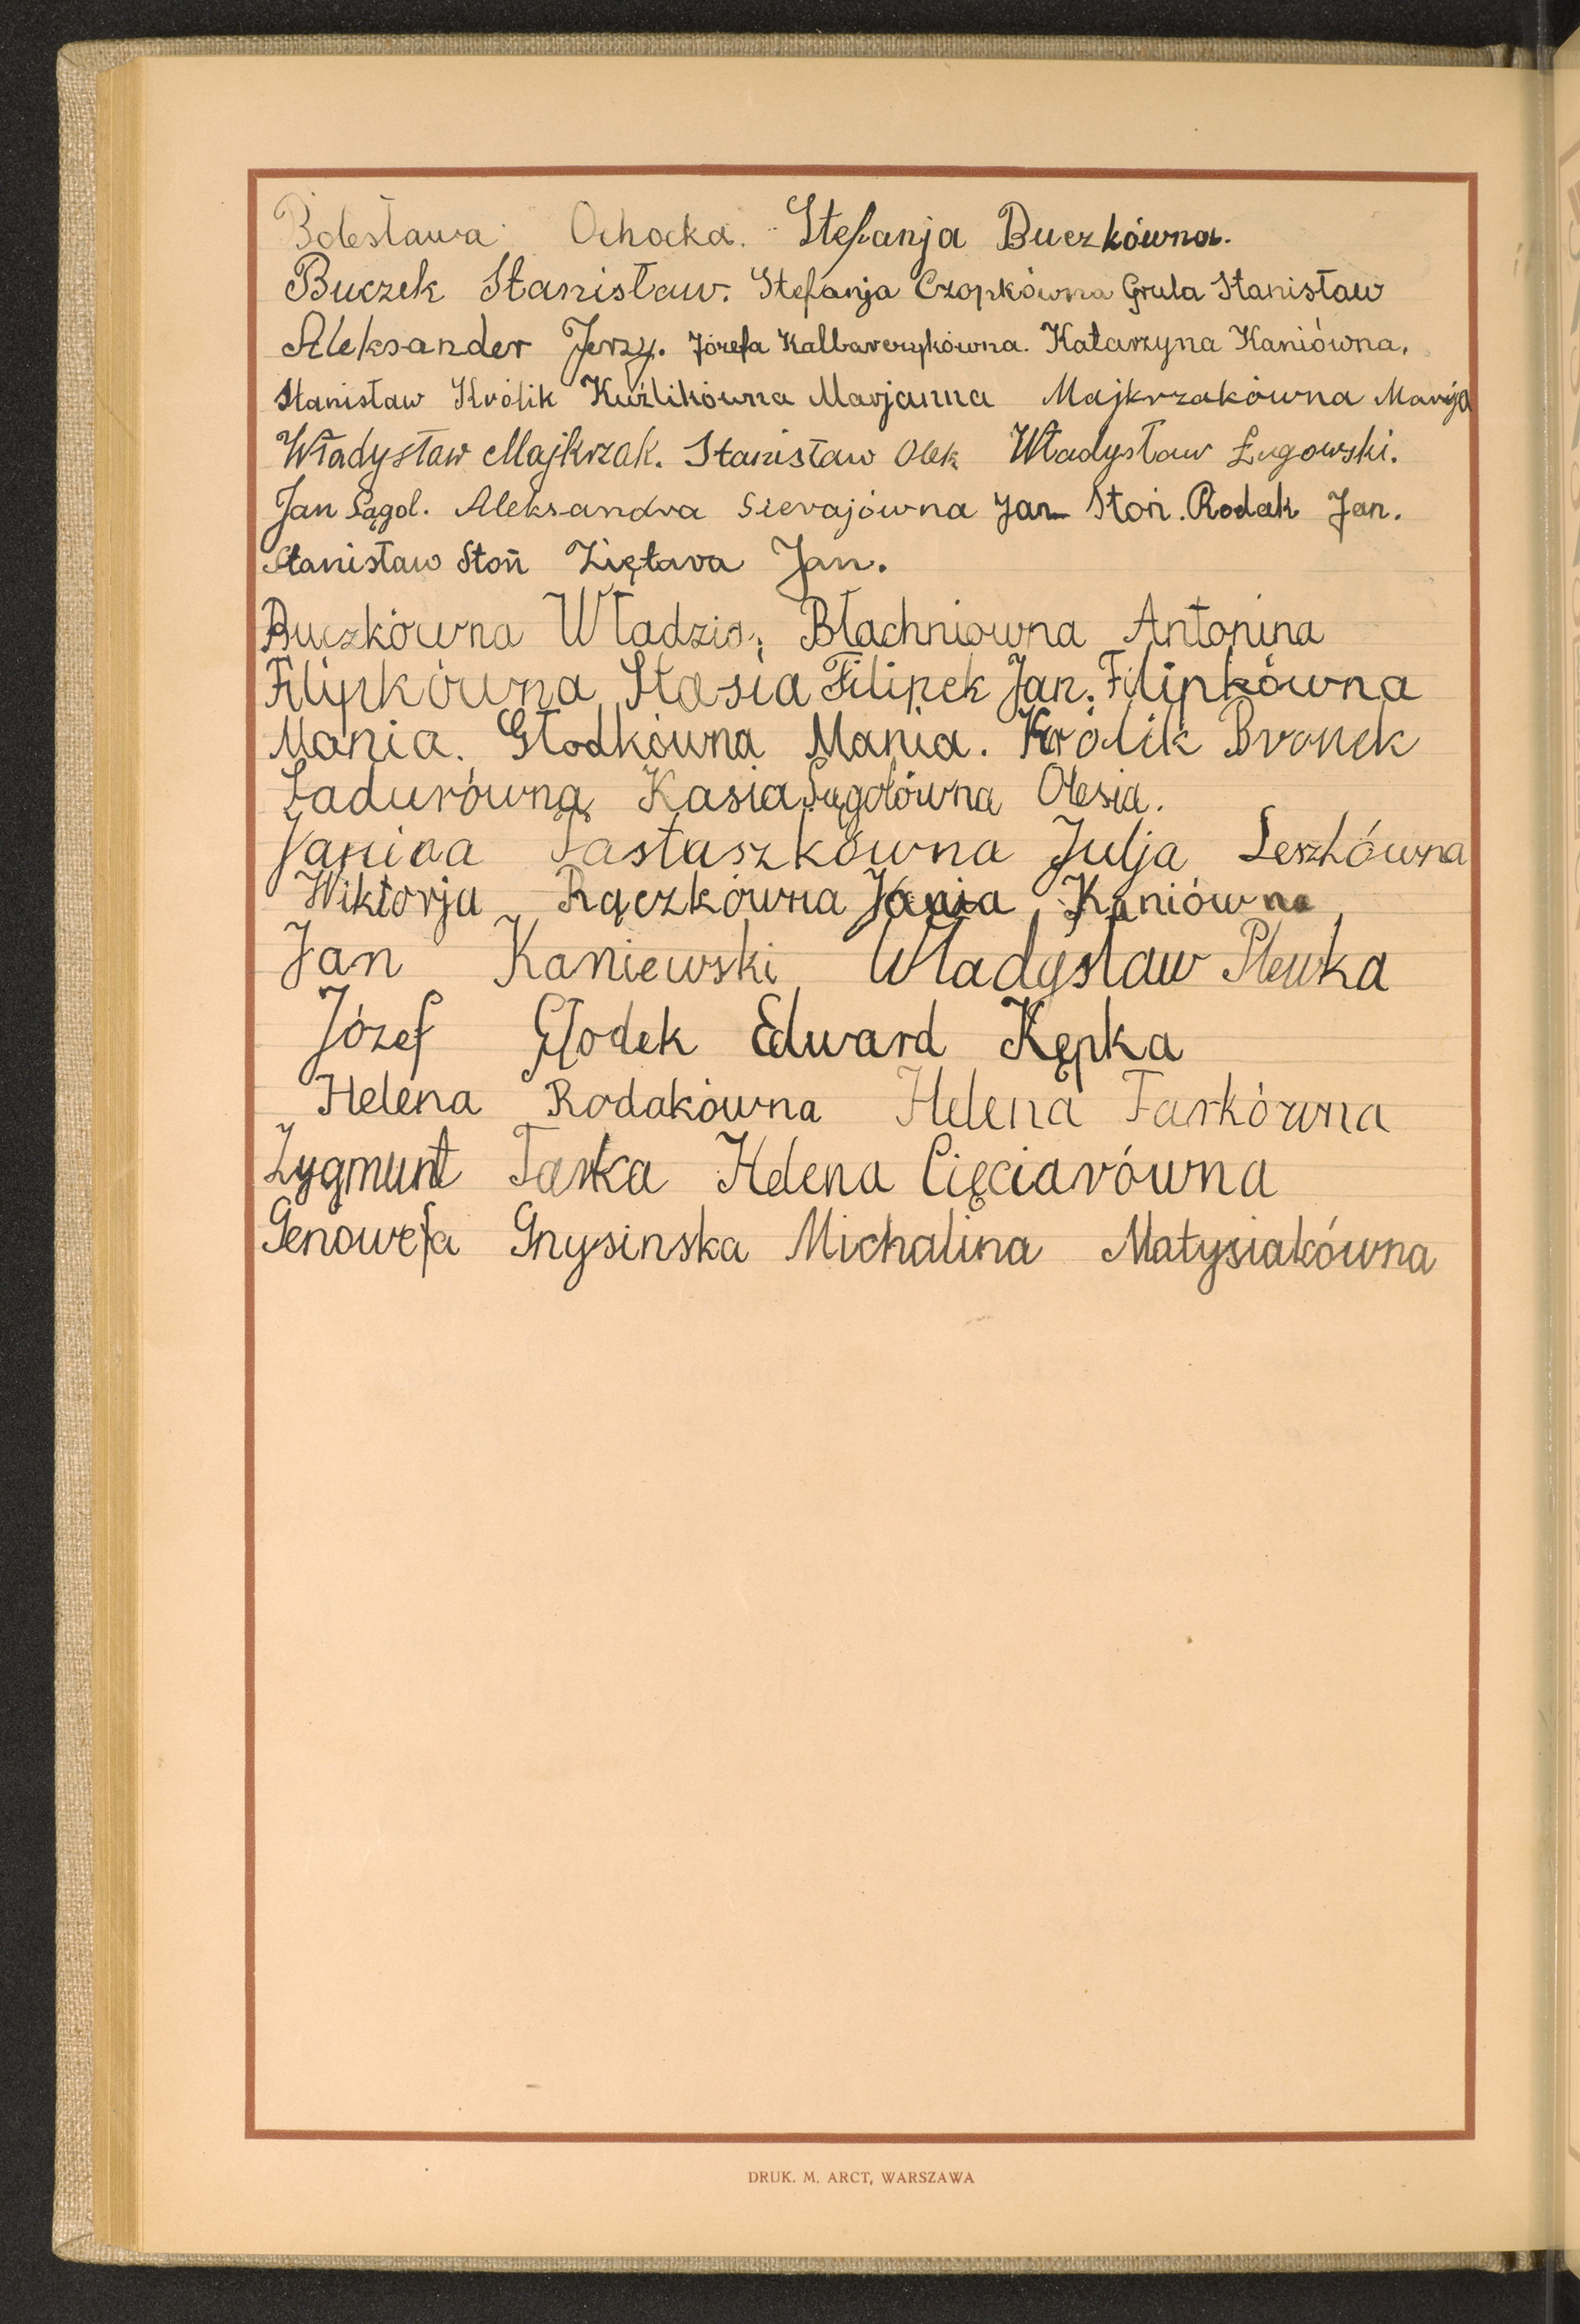 Bolesława Ochocka. Stefanja Buczkówna.
Buczek Stanisław. Stefanja Czopkówna Grula Stanisław
Aleksander Jerzy. Józefa Kalbarczykówna. Katarzyna Kaniówna,
Stanisław Królik Kuźlikówna Marjanna Majkrzakówna Marija
Władysław Majkrzak. Stanisław Olek Władysław Ługowski.
Jan Sągol. Aleksandra Sierajówna Jan Stoń. Rodak Jan.
Stanisław Stoń Ziętara Jan.
Buczkówna Władzia, Błachniowna Antonina
Filipkówna Stasia Filipek Jan. Filipkówna
Mania. Głodkówna Mania. Królik Bronek
Ładurówna Kasia Sągolówna Olesia.
Janina Pastuszkówna Julja Leszkówna
Wiktorja Rączkówna Jania Kaniówna
Jan Kaniewski Władysław Plewka
Józef Głodek Edward Kępka
Helena Rodakówna Helena Farkówna
Zygmunt Tarka Helena Cięciarówna
Genowefa Gnysinska Michalina Matysiakówna
DRUK. M. ARCT, WARSZAWA